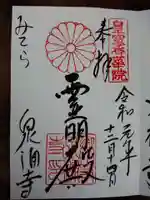 奉拝
皇霊香華院
令和元年
十二月十四日
霊明殿
みてら
泉涌寺